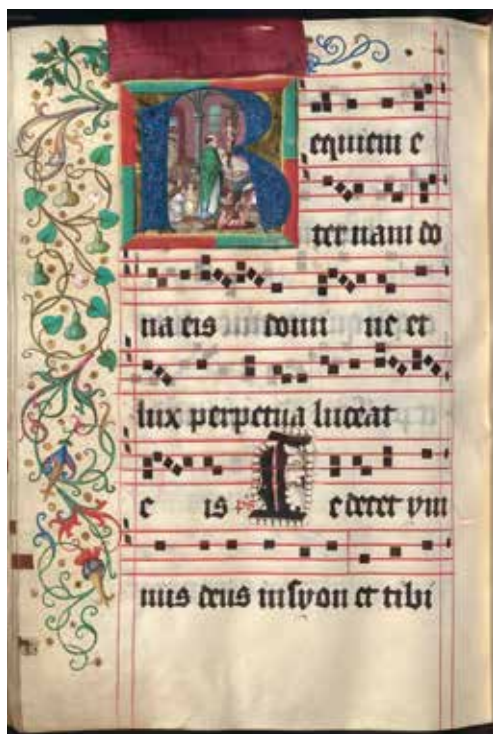 Requiem e
ternam do
na eis domi ne et
lux perpetua luceat
e is Te decet ym
nus deus in syon et tibi